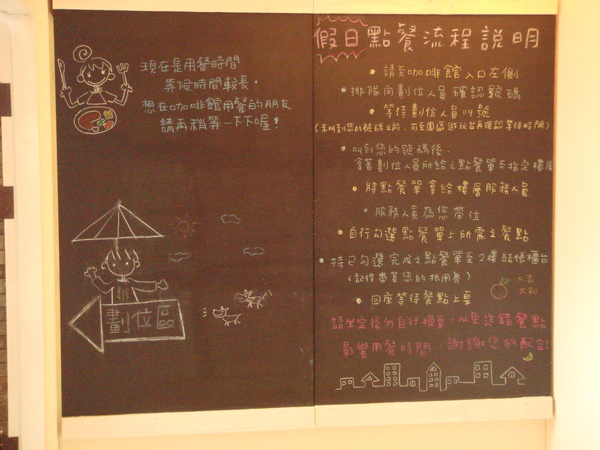 現在是用餐時間
等候時間較長。
想在咖啡館用餐的朋友
請再稍等一下下喔！
劃位區
假日點餐流程說明
請至咖啡館入口左側
排隊向劃位人員確認號碼
等待劃位人員叫號
(未叫到您的號碼之前，可至園區遊玩並再確認等待時間)
叫到您的號碼後，
拿著劃位人員所給之點餐單至指定樓層
將點餐單拿給樓層服務人員
服務人員為您帶位
自行勾選點餐單上所需之餐點
持已勾選完成之點餐單至2樓結帳櫃台
(記得帶著您的抵用券)
回座等待餐點上桌
大吉
大利
請坐定後勿自行換桌，以免送錯餐點
影響用餐時間，謝謝您的配合！